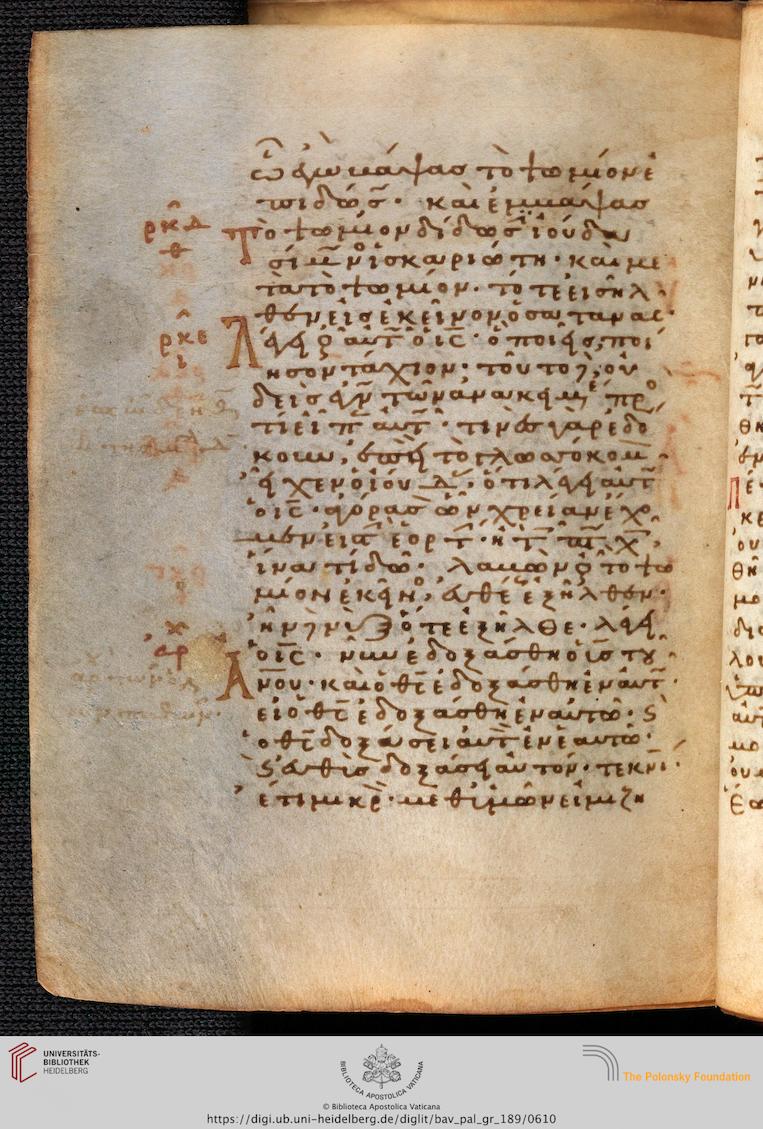 ᾧ ἐγὼ βάψας τὸ ψωμίον ἐ
πιδώσω· καὶ ἐμβάψας
Το ψωμίον δίδωσιν ἰούδα
σίμωνος ἰσκαριώτη· καὶ με
τὰ τὸ ψωμίον· τότε εἰσηλ
θεν εἰς ἐκεῖνον ὁ σατανας·
Λέγει οὖν αὐτῶ ὁ ις· ὁ ποιεῖς ποί
ησον τάχιον· τοῦτο δὲ οὐ
δεὶς ἔγνω τῶν ἀνακειμένων πρὸς
τί εἶπεν αὐτῶ· τινὲς γὰρ ἐδό
κουν, ἐπεὶ τὸ γλωσσόκομον
εἶχεν ὁ ἰούδας, ὅτι λέγει αὐτῶ
ὁ ις· ἀγόρασον ὧν χρείαν ἔχο
μεν εἰς τὴν ἑορτήν· ἢ τοῖς πτωχοῖς
ἵνα τὶ δῶ· λαβὼν οὖν τὸ ψω
μίον ἐκεῖνος, εὐθέως ἐξῆλθεν·
ἦν δὲ νὺξ ὅτε ἐξῆλθε· λέγει
ὁ ις· νῦν ἐδοξάσθη ὁ υἱὸς τοῦ
Ανου· καὶ ὁ θς ἐδοξάσθη ἐν αὐτῶ·
εἰ ὁ θς ἐδοξάσθη ἐν αὐτῶ· καὶ
ὁ θς δοξάσει αὐτὸν ἐν ἑαυτῶ·
καὶ εὐθὺς δοξάσει αὐτόν· τεκνία
ἔτι μικρὸν μεθ' ὑμῶν εἰμι ζη
ρκδ
θ
ρκε
ι
αρχ
UNIVERSITÄTS-
BIBLIOTHEK
HEIDELBERG
BIBLIOTECA APOSTOLICA VATICANA
The Polonsky Foundation
© Biblioteca Apostolica Vaticana
https://digi.ub.uni-heidelberg.de/diglit/bav_pal_gr_189/0610